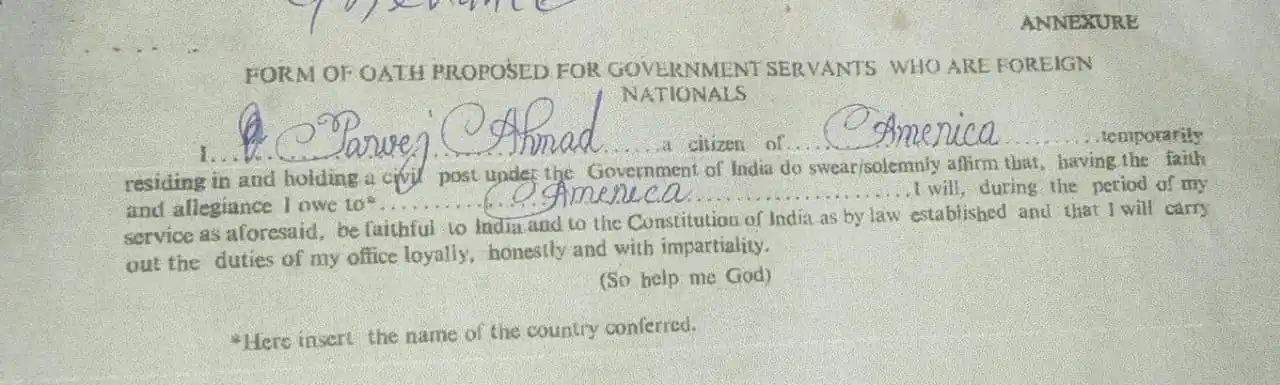 ANNEXURE
FORM OF OATH PROPOSED FOR GOVERNMENT SERVANTS WHO ARE FOREIGN
NATIONALS
I... Parwej Ahmad ......a citizen of..... America ...........temporarily
residing in and holding a civil post under the Government of India do swear/solemnly affirm that, having the faith
and allegiance I owe to*............ America ........................I will, during the period of my
service as aforesaid, be faithful to India and to the Constitution of India as by law established and that I will carry
out the duties of my office loyally, honestly and with impartiality.
(So help me God)
*Here insert the name of the country conferred.